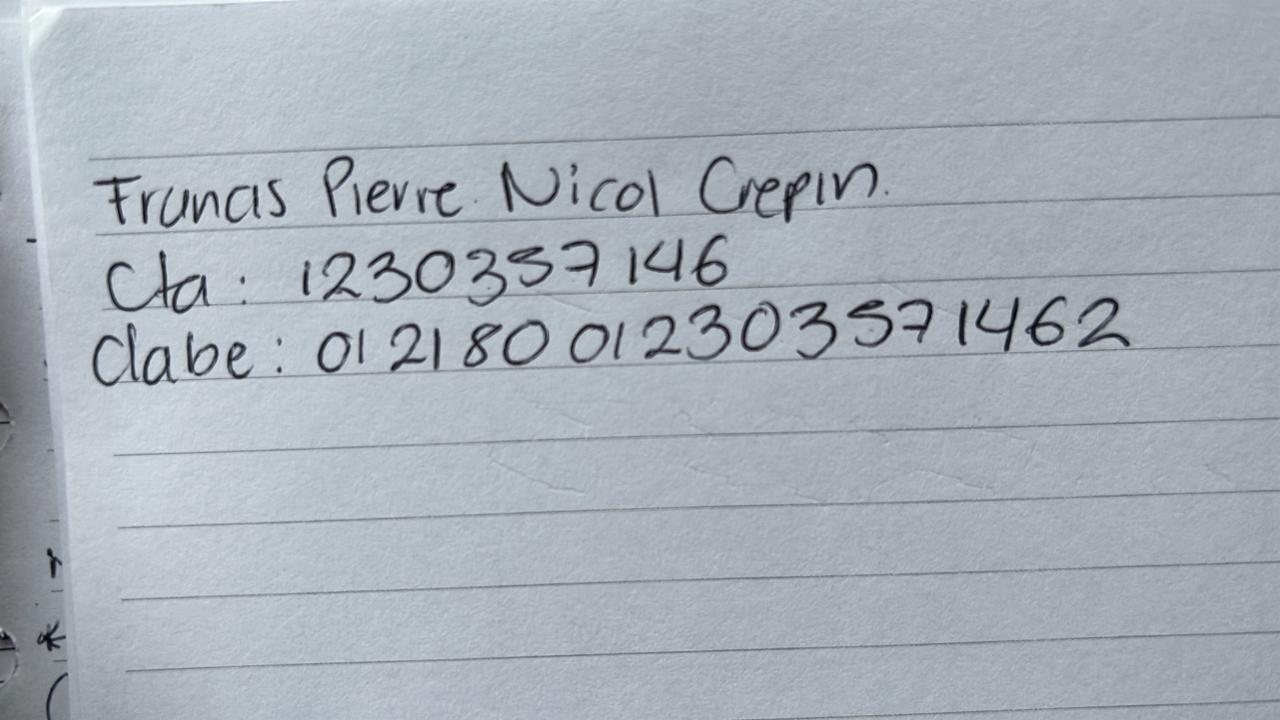 Francis Pierre Nicol Crepin.
Cta: 1230357146
Clabe: 012180012303571462